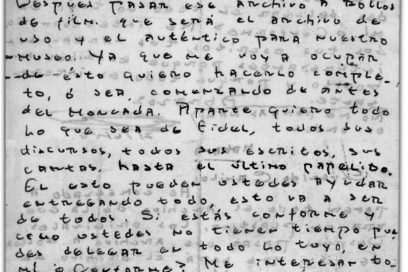 Después pasar ese archivo a rollos
de film, que será el archivo de
uso y el auténtico para nuestro
museo. Ya que me voy a ocupar
de esto quiero hacerlo comple-
to, ó sea comenzando de antes
del Moncada. Aparte quiero todo
lo que sea de Fidel, todos sus
discursos, todos sus escritos, sus
cartas, hasta el último papelito.
En esto pueden ustedes ayudar
entregando todo, esto va a ser
de todos. Si estás conforme y
como ustedes no tienen tiempo pue-
des delegar en todo lo tuyo, en
mí ¿Conforme? Me interesan to-